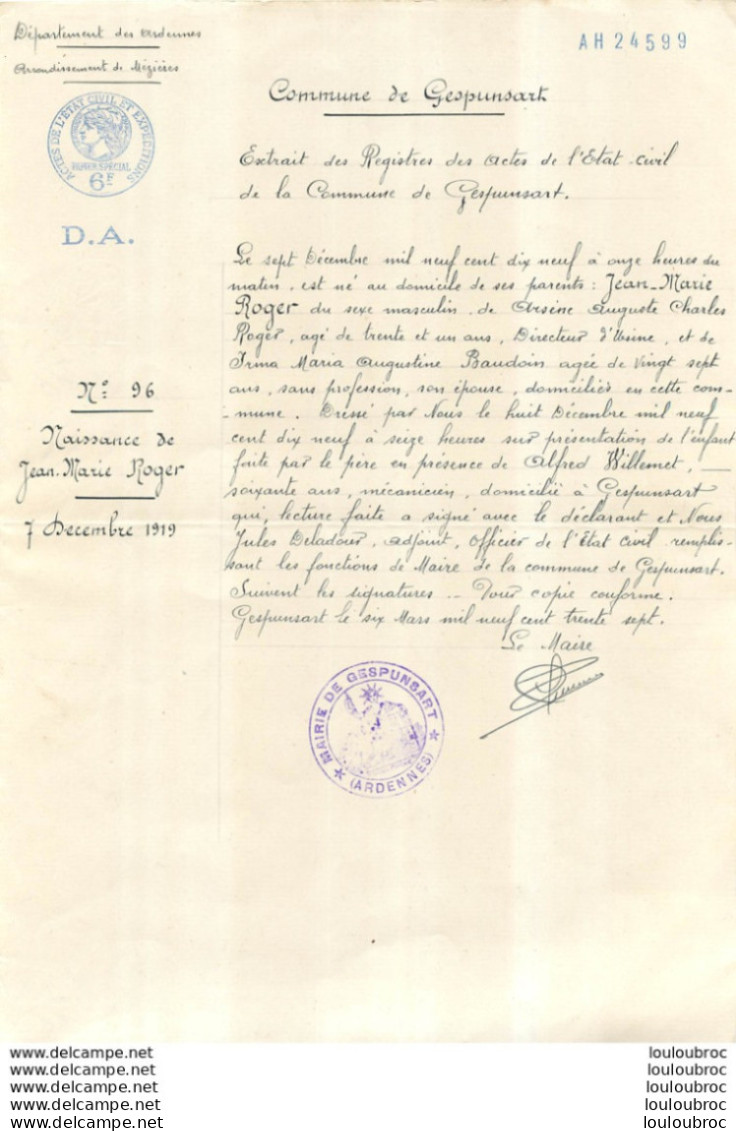 Département des Ardennes
Arrondissement de Mézières
AH 24599
ACTES DE L'ÉTAT CIVIL ET EXPÉDITIONS
PAPIER SPÉCIAL
6F
D.A.
Commune de Gespunsart
Extrait des Registres des Actes de l'Etat-civil
de la Commune de Gespunsart.
Le sept Décembre mil neuf cent dix neuf à onze heures du
matin, est né au domicile de ses parents : Jean-Marie
Roger du sexe masculin, de Arsène Auguste Charles
Roger, agé de trente et un ans, Directeur d'Usine, et de
Irma Maria Augustine Baudoin agée de vingt sept
ans, sans profession, son épouse, domiciliés en cette com-
-mune. Dressé par Nous le huit Décembre mil neuf
cent dix neuf à seize heures sur présentation de l'enfant
faite par le père en présence de Alfred Willemet, —
soixante ans, mécanicien, domicilié à Gespunsart
qui, lecture faite a signé avec le déclarant et Nous
Jules Deladour, adjoint, officier de l'Etat civil remplis-
sant les fonctions de Maire de la commune de Gespunsart.
Suivent les signatures -- Pour copie conforme.
Gespunsart le six Mars mil neuf cent trente sept.
Le Maire
N° 96
Naissance de
Jean-Marie Roger
7 Decembre 1919
MAIRIE DE GESPUNSART
(ARDENNES)
www.delcampe.net
www.delcampe.net
www.delcampe.net
www.delcampe.net
www.delcampe.net
louloubroc
louloubroc
louloubroc
louloubroc
louloubroc